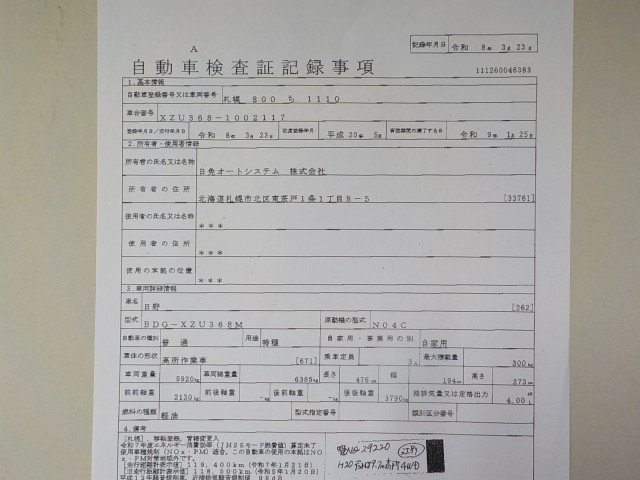 A
記録年月日 令和 8年 3月 23日
自動車検査証記録事項
111260046383
1. 基本情報
自動車登録番号又は車両番号 札幌 800 ち 1110
車台番号 XZU368-1002117
登録年月日/交付年月日 令和 8年 3月 23日 初度登録年月 平成 20年 5月 有効期間の満了する日 令和 9年 1月 25日
2. 所有者・使用者情報
所有者の氏名又は名称 日免オートシステム 株式会社
所有者の住所 北海道札幌市北区東茨戸1条1丁目8-5 [33761]
使用者の氏名又は名称 ***
使用者の住所 ***
使用の本拠の位置 ***
3. 車両詳細情報
車名 日野 [262]
型式 BDG-XZU368M 原動機の型式 N04C
自動車の種別 普通 用途 特種 自家用・事業用の別 自家用
車体の形状 高所作業車 [671] 乗車定員 3人 最大積載量 300kg
車両重量 5920kg 車両総重量 6385kg 長さ 476cm 幅 194cm 高さ 273cm
前前軸重 2130kg 前後軸重 -kg 後前軸重 -kg 後後軸重 3790kg 総排気量又は定格出力 4.00L
燃料の種類 軽油 型式指定番号 類別区分番号
4. 備考
[札幌], 移転登録, 管轄変更入
令和7年度エネルギー消費効率(JH25モード燃費値)算定未了
使用車種規制(NOx・PM)適合, この自動車の使用の本拠はNO
x・PM対策地域外です。
[走行距離計表示値]119,400km(令和7年1月21日)
[旧走行距離計表示値]118,500km(令和5年1月20日)
29220